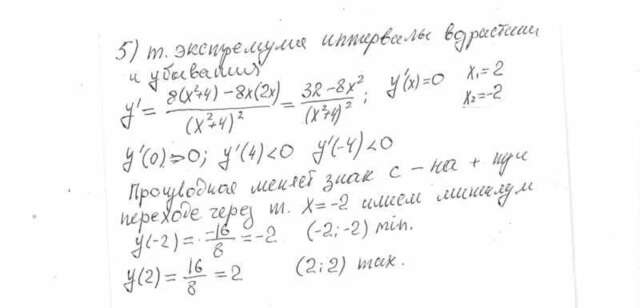 5) т. экстремума интервалы вдрастани
и убывания
y' = 8(x²+4) - 8x(2x) / (x²+4)² = 32 - 8x² / (x²+4)² ; y'(x)=0 x₁=2 x₂=-2
y'(0)>0; y'(4)<0 y'(-4)<0
Производная меняет знак с - на + при
переходе через т. x=-2 имеем минимум
y(-2) = -16/8 = -2 (-2;-2) min.
y(2) = 16/8 = 2 (2;2) max.